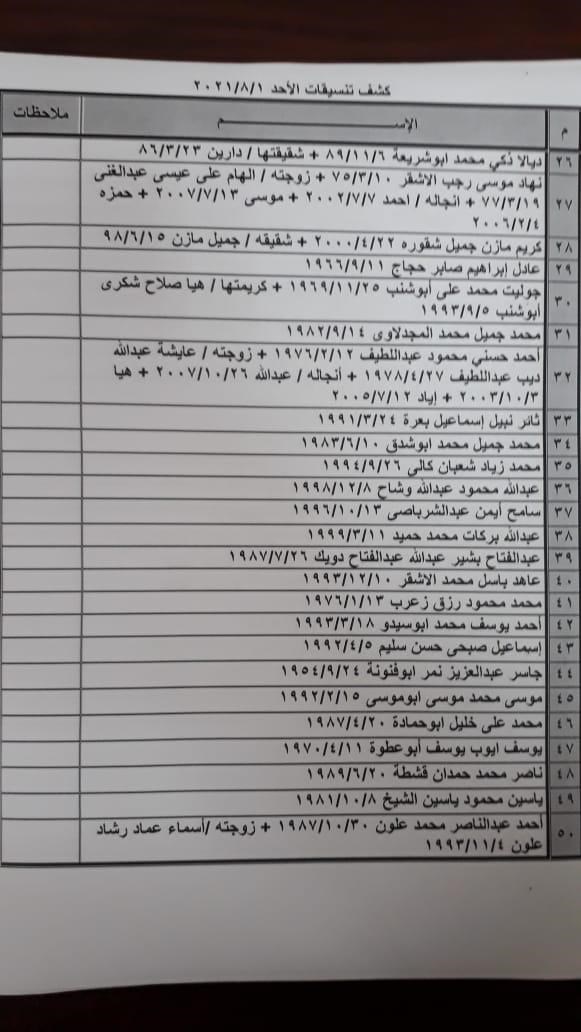 كشف تنسيقات الأحد ٢٠٢١/٨/١
م الإســـــــم ملاحظات
٢٦ ديالا ذكي محمد ابوشريعة ٨٩/١١/٦ + شقيقتها / دارين ٨٦/٣/٢٣
نهاد موسى رجب الاشقر ٧٥/٣/١٠ + زوجته / الهام على عيسى عبدالغنى
٢٧ ٧٧/٣/١٩ + انجاله / احمد ٢٠٠٢/٧/٧ + موسى ٢٠٠٧/٧/١٣ + حمزه
٢٠٠٦/٢/٤
٢٨ كريم مازن جميل شقوره ٢٠٠٠/٤/٢٢ + شقيقه / جميل مازن ٩٨/٦/١٥
٢٩ عادل إبراهيم صابر حجاج ١٩٦٦/٩/١١
٣٠ جوليت محمد على أبوشنب ١٩٦٩/١١/٢٥ + كريمتها / هيا صلاح شكرى
أبوشنب ١٩٩٣/٩/٥
٣١ محمد جميل محمد المجدلاوى ١٩٨٢/٩/١٤
أحمد حسني محمود عبداللطيف ١٩٧٦/٢/١٢ + زوجته / عايشة عبدالله
٣٢ ديب عبداللطيف ١٩٧٨/٤/٢٧ + أنجاله / عبدالله ٢٠٠٧/١٠/٢٦ + هيا
٢٠٠٣/١٠/٣ + إياد ٢٠٠٥/٧/١٢
٣٣ ثائر نبيل إسماعيل بعرة ١٩٩١/٣/٢٤
٣٤ محمد جميل محمد ابوشدق ١٩٨٣/٦/١٠
٣٥ محمد زياد شعبان كالى ١٩٩٤/٩/٢٦
٣٦ عبدالله محمود عبدالله وشاح ١٩٩٨/١٢/٨
٣٧ سامح أيمن عبدالشرباصى ١٩٩٦/١٠/١٣
٣٨ عبدالله بركات محمد حميد ١٩٩٩/٣/١١
٣٩ عبدالفتاح بشير عبدالله عبدالفتاح دويك ١٩٨٧/٧/٢٦
٤٠ عاهد باسل محمد الاشقر ١٩٩٣/١٢/١٠
٤١ محمد محمود رزق زعرب ١٩٧٦/١/١٣
٤٢ أحمد يوسف محمد ابوسيدو ١٩٩٣/٣/١٨
٤٣ إسماعيل صبحى حسن سليم ١٩٩٢/٤/٥
٤٤ جاسر عبدالعزيز نمر ابوفنونة ١٩٥٤/٩/٢٤
٤٥ موسى محمد موسى ابوموسى ١٩٩٢/٢/١٥
٤٦ محمد على خليل ابوحمادة ١٩٨٧/٤/٢٠
٤٧ يوسف ايوب يوسف أبو عطوة ١٩٧٠/٤/١١
٤٨ ناصر محمد حمدان قشطة ١٩٨٩/٦/٢٠
٤٩ ياسين محمود ياسين الشيخ ١٩٨١/١٠/٨
٥٠ أحمد عبدالناصر محمد علون ١٩٨٧/١٠/٣٠ + زوجته /أسماء عماد رشاد
علون ١٩٩٣/١١/٤